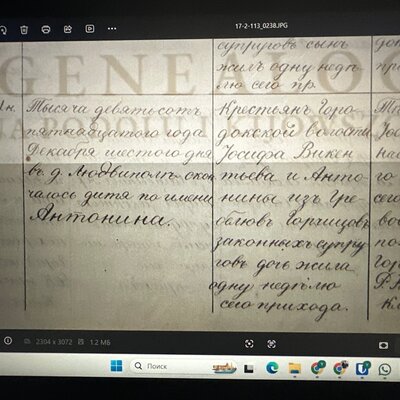 17-2-113_0238.JPG
GENE
супруговъ сынъ
жилъ одну недѣ
лю сего пр.
Тысяча девятьсотъ
пятнадцатого года
Декабря шестого дня
въ д. Людвиполь окон
чалось дитя по имени
Антонина.
Крестьянъ Горо
докской волости
Іосифа Викен
тьева и Анто
нины изъ Гре
бловъ Горчицовъ
законныхъ супру
говъ дочь жила
одну недѣлю
сего прихода.
2304 x 3072 1.2 МБ
Поиск